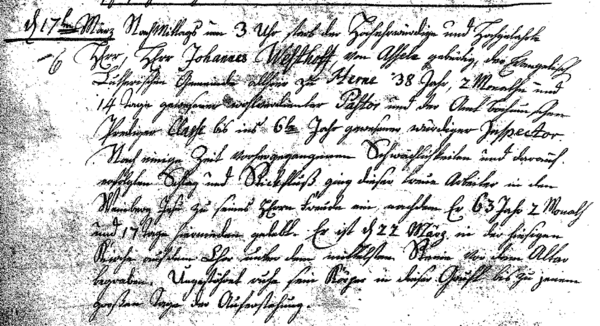 d 17ten März NachMittags um 3 Uhr starb der Hochehrwürdige und Hochgelahrte
6 Herr, Herr Johannes Westhoff von Asseln gebürtig, der Evangelisch
Lutherischen Gemeinde allhier zu Herne 38 Jahr, 2 Monathe und
14 Tage gewesener Pastor und der Amt bochumschen
Prediger Classe bis ins 6te Jahr gewesener würdiger Inspector
Nach einige Zeit vorhergegangenen Schwächlichkeiten und darauf
erfolgten Schlag und Stickfluß ging dieser treue Arbeiter in dem
Weinberg Jesu zu seines Herrn Freude ein nachdem Er 63 Jahr 2 Monath
und 17 Tage hernieden gelebt. Er ist d 22 März in der hiesigen
Kirche auf dem Chor unter dem mittelsten Steine vor dem Altar
begraben. Ungestöhret ruhe sein Körper in dieser Gruft bis zu jenem
großen Tage der Auferstehung.